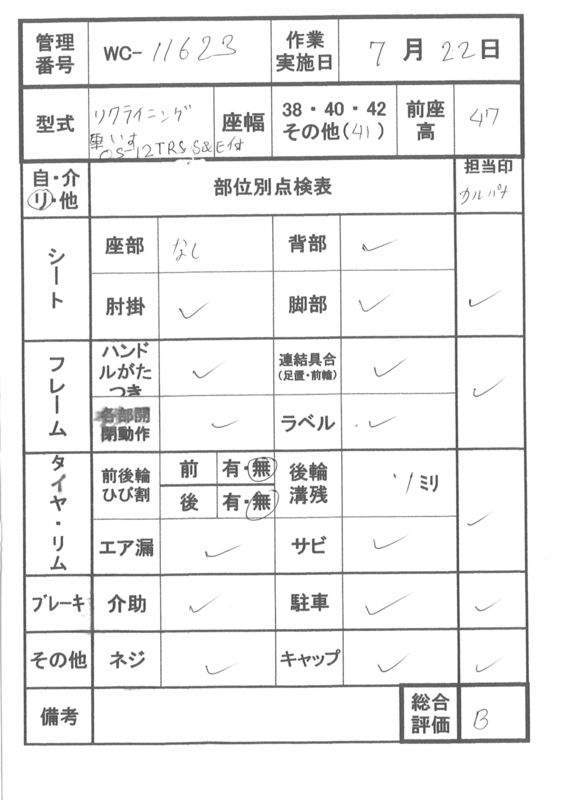 管理番号 WC-11623 作業実施日 7月22日
型式 リクライニング車いす OS-12TRS S&E付 座幅 38・40・42 その他(41) 前座高 47
自・介・リ・他 部位別点検表 担当印 カルパナ
シート 座部 なし 背部 ✓
肘掛 ✓ 脚部 ✓ ✓
フレーム ハンドルがたつき ✓ 連結具合(足置・前輪) ✓ ✓
各部開閉動作 ✓ ラベル ✓
タイヤ・リム 前後輪ひび割 前 有・無 後輪溝残 ミリ
後 有・無
エア漏 ✓ サビ ✓ ✓
ブレーキ 介助 ✓ 駐車 ✓ ✓
その他 ネジ ✓ キャップ ✓ ✓
備考 総合評価 B